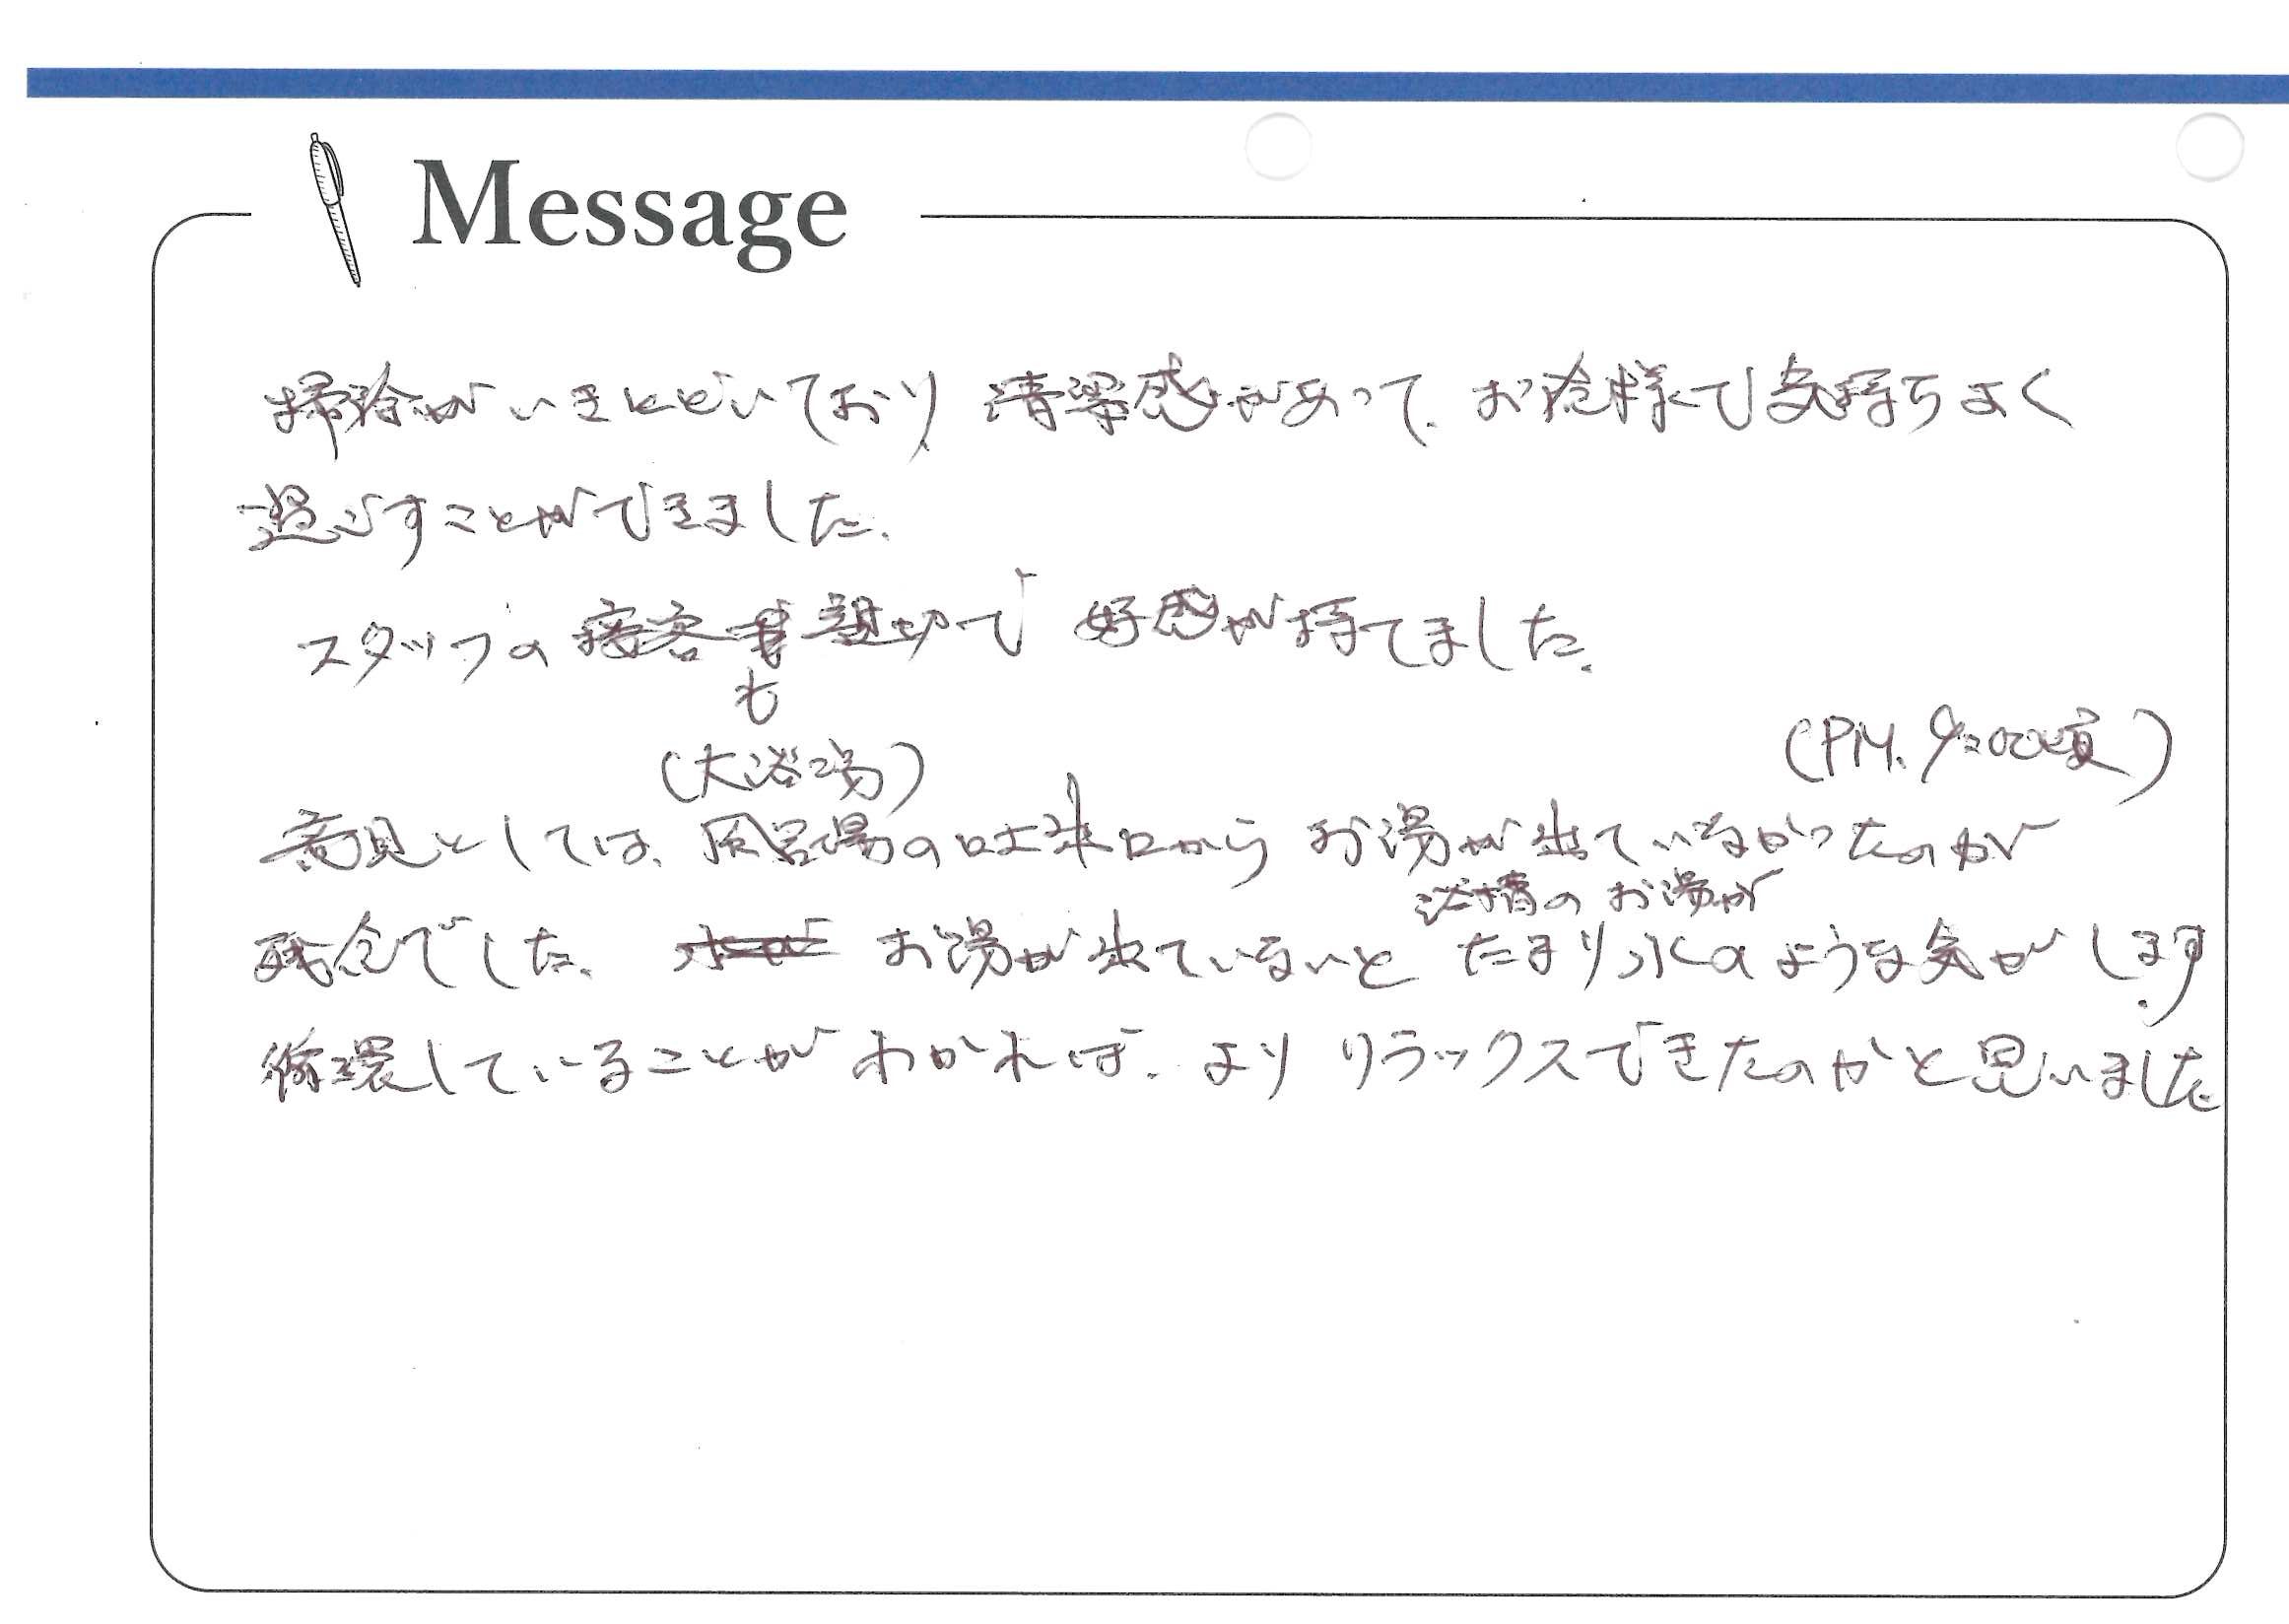 Message
掃除がいきとどいており、清潔感があって、お陰様で気持ちよく
過ごすことができました。
スタッフの接客も親切で好感が持てました。
(大浴場)
(PM.9:00頃)
意見としては、風呂場の吐出口からお湯が出ていなかったのが
浴槽のお湯が
残念でした。お湯が出ていないとたまり水のような気がします。
循環していることがわかれば、よりリラックスできたのかと思いました。